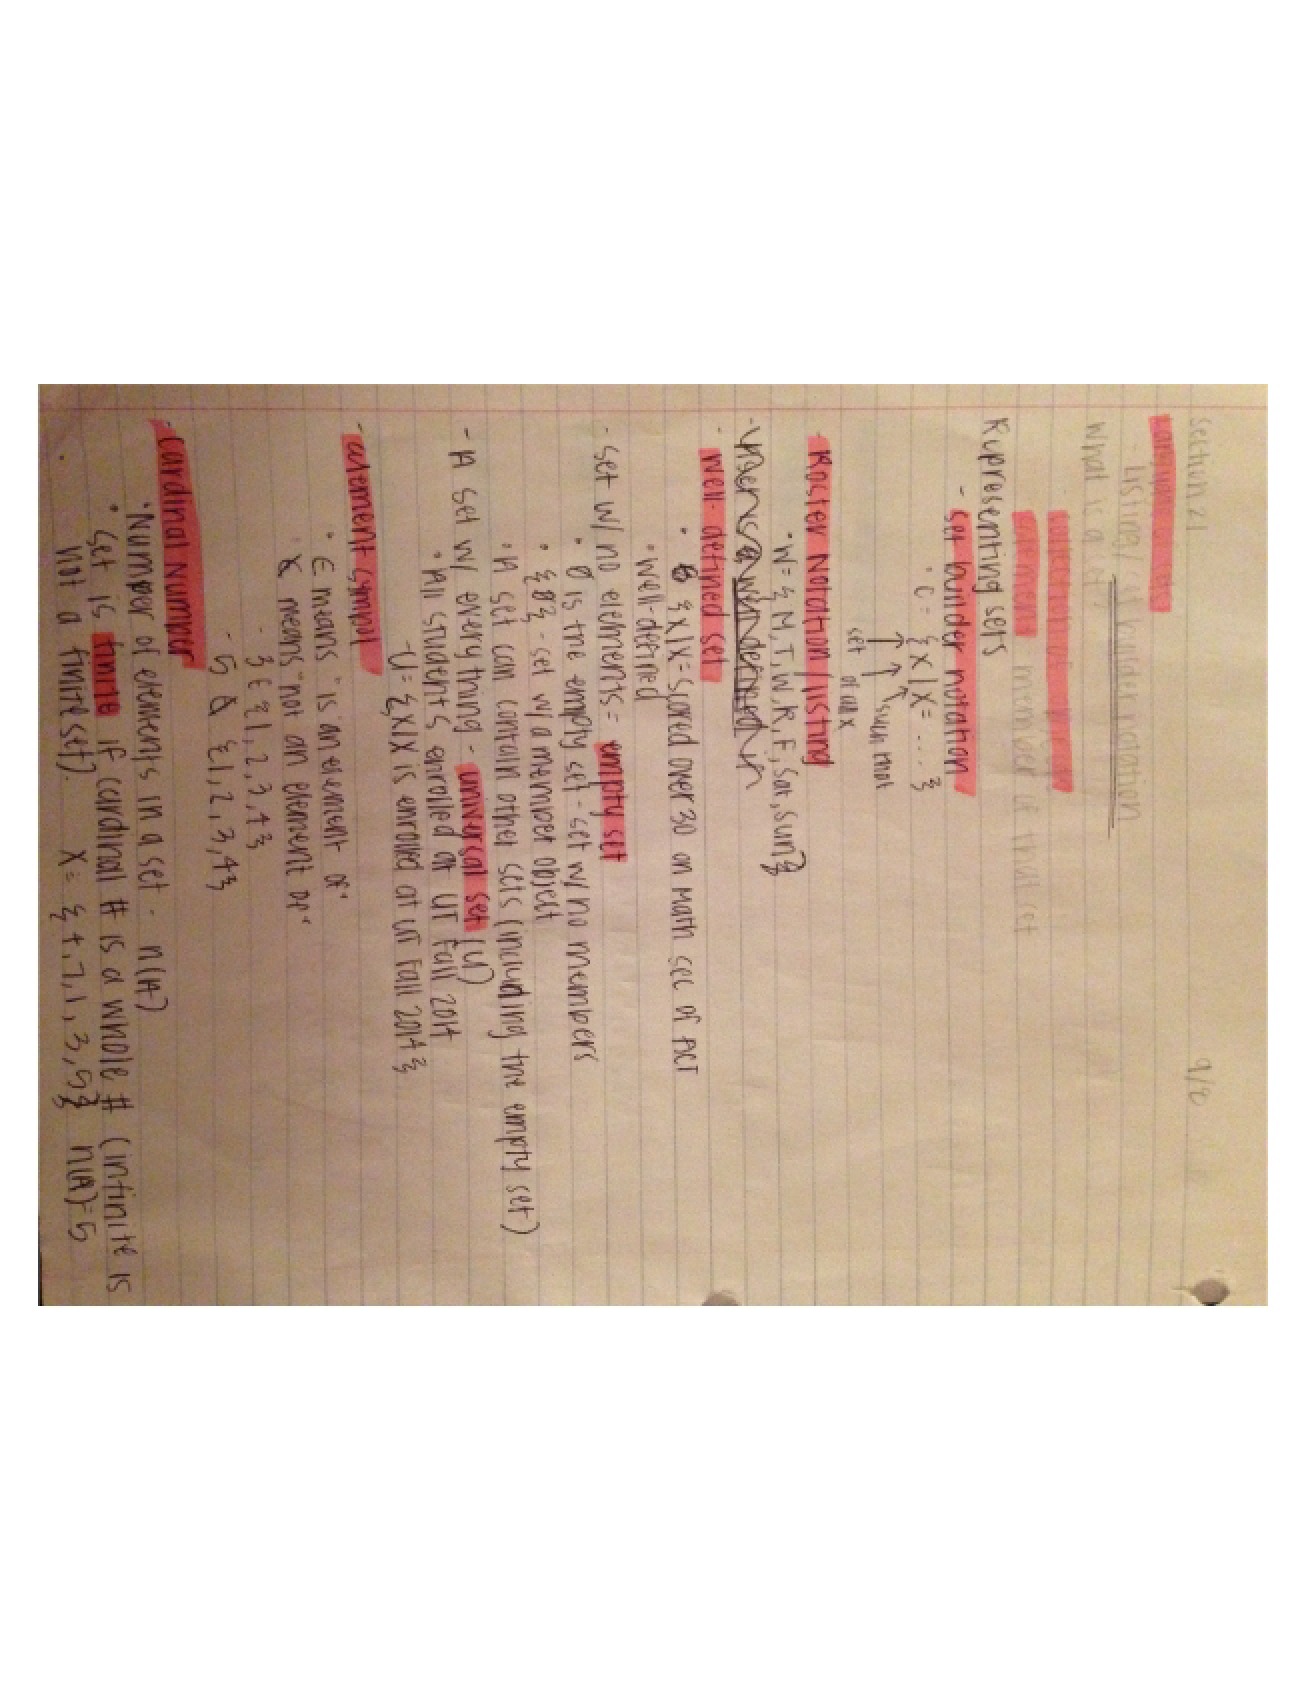 Section 2.1 9/8
- Listing / set builder notation
What is a set?
member of that set
Representing sets
- set builder notation
• C = { x | x = .... }
set of all x such that
- Roster Notation / listing
• W = { M, T, W, R, F, Sat, Sun }
- well-defined set
• { x | x = scored over 30 on math sec of ACT
• well-defined
- set w/ no elements = empty set
• Ø is the empty set - set w/ no members
• { Ø } - set w/ a member object
• A set can contain other sets (including the empty set)
- A set w/ everything - universal set (U)
• All students enrolled at UT fall 2014
- U = { x | x is enrolled at UT Fall 2014 }
- element symbol
• ∈ means "is an element of"
• ∉ means "not an element of"
- 3 ∈ { 1, 2, 3, 4 }
- 5 ∉ { 1, 2, 3, 4 }
- Cardinal Number
• Number of elements in a set - n(A)
• Set is finite if cardinal # is a whole # (infinite is
not a finite set). X = { 4, 2, 1, 3, 5 } n(A) = 5